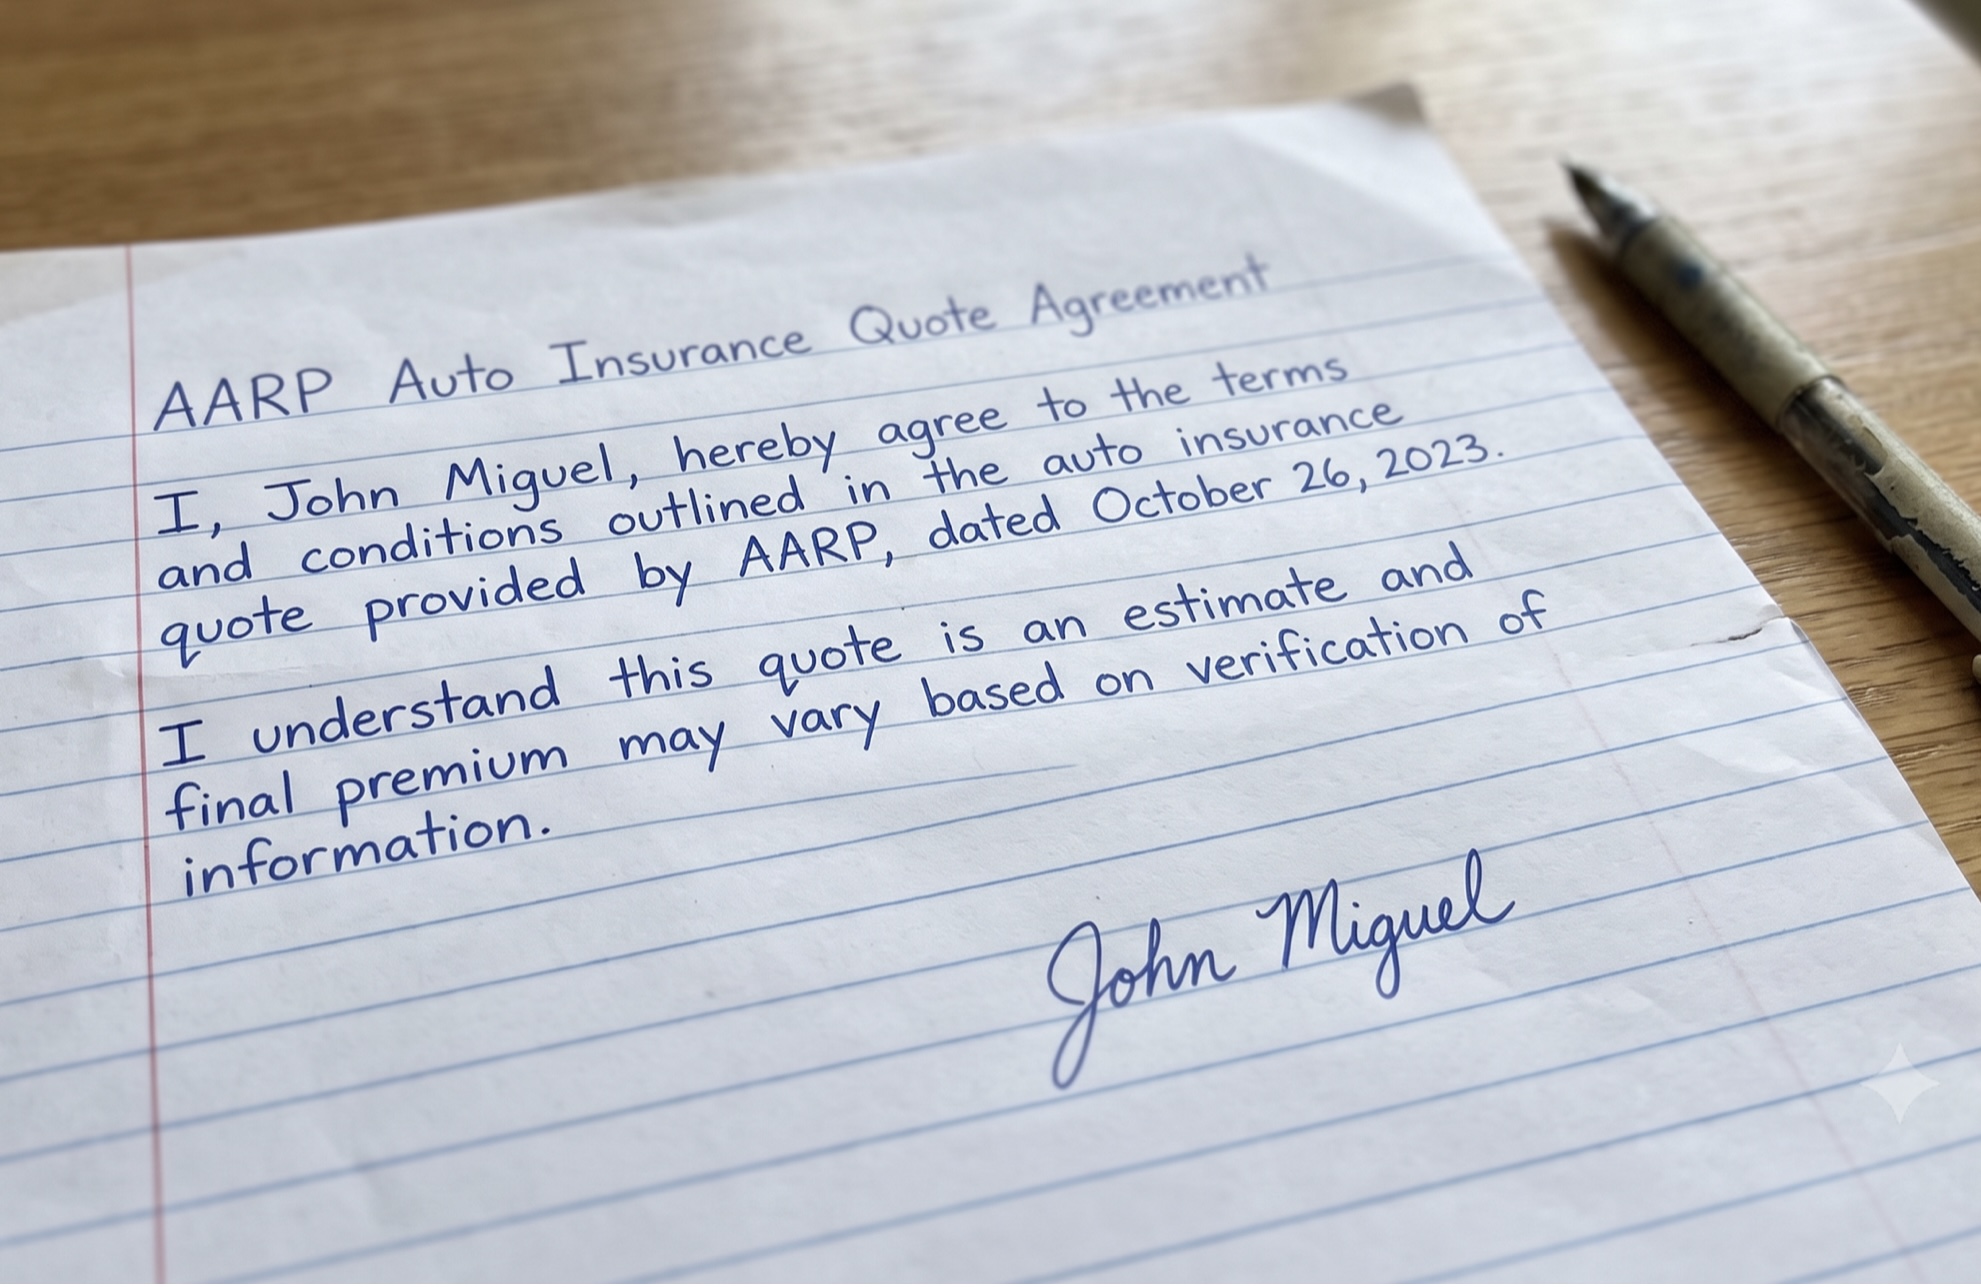 AARP Auto Insurance Quote Agreement
I, John Miguel, hereby agree to the terms
and conditions outlined in the auto insurance
quote provided by AARP, dated October 26, 2023.
I understand this quote is an estimate and
final premium may vary based on verification of
information.
John Miguel